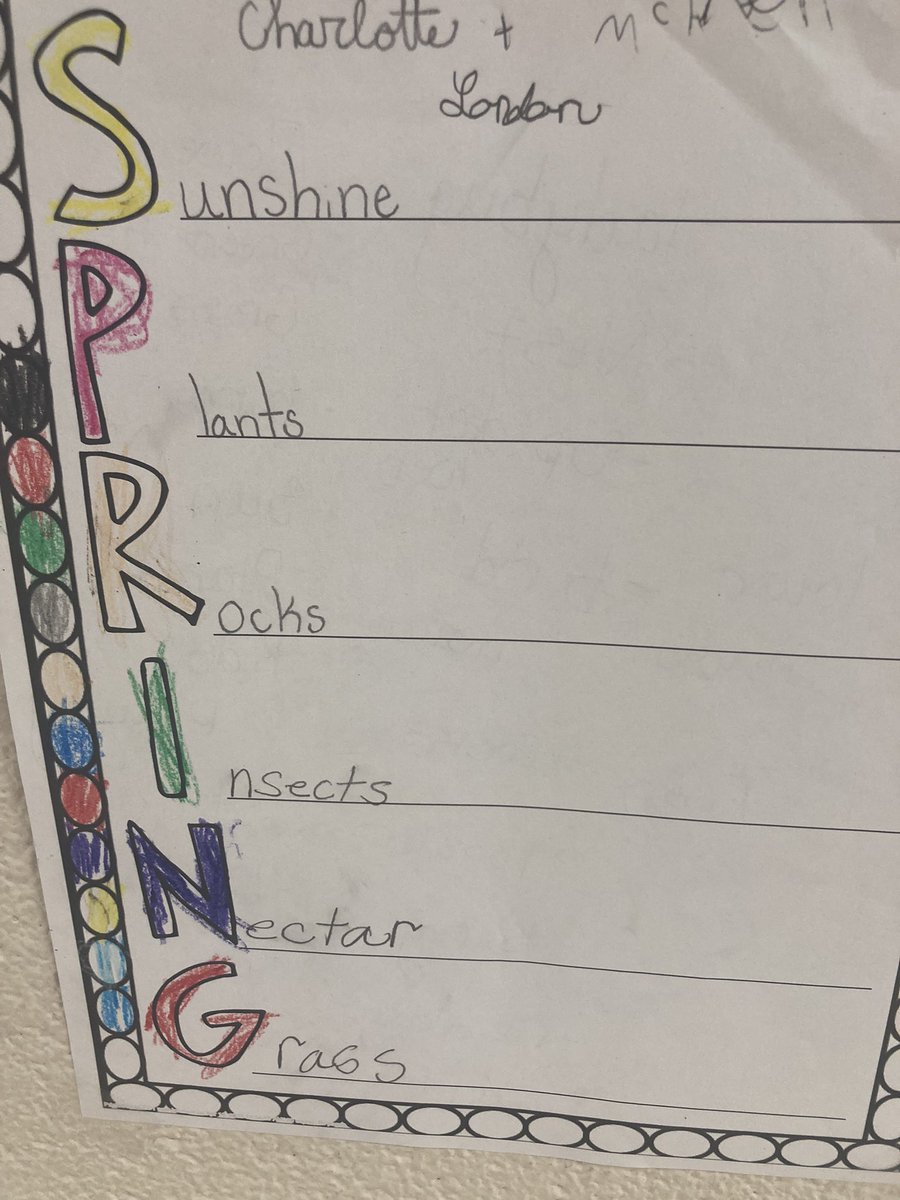 Charlotte +
London
Sunshine
Plants
Rocks
Insects
Nectar
Grass